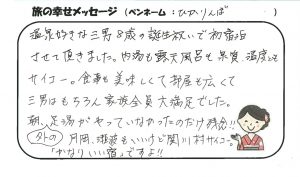 旅の幸せメッセージ (ペンネーム:ひかりんぱ )
温泉好きな三男8歳の誕生祝いで初宿泊
させて頂きました。内湯も露天風呂も泉質、温度とも
サイコー。食事も美味しくて部屋も広くて
三男はもちろん家族全員大満足でした。
朝、足湯がやっていなかったのだけ残念!!
外の
月岡、瀬波もいいけど関川村サイコー。
「かなりいい宿」ですよ!!